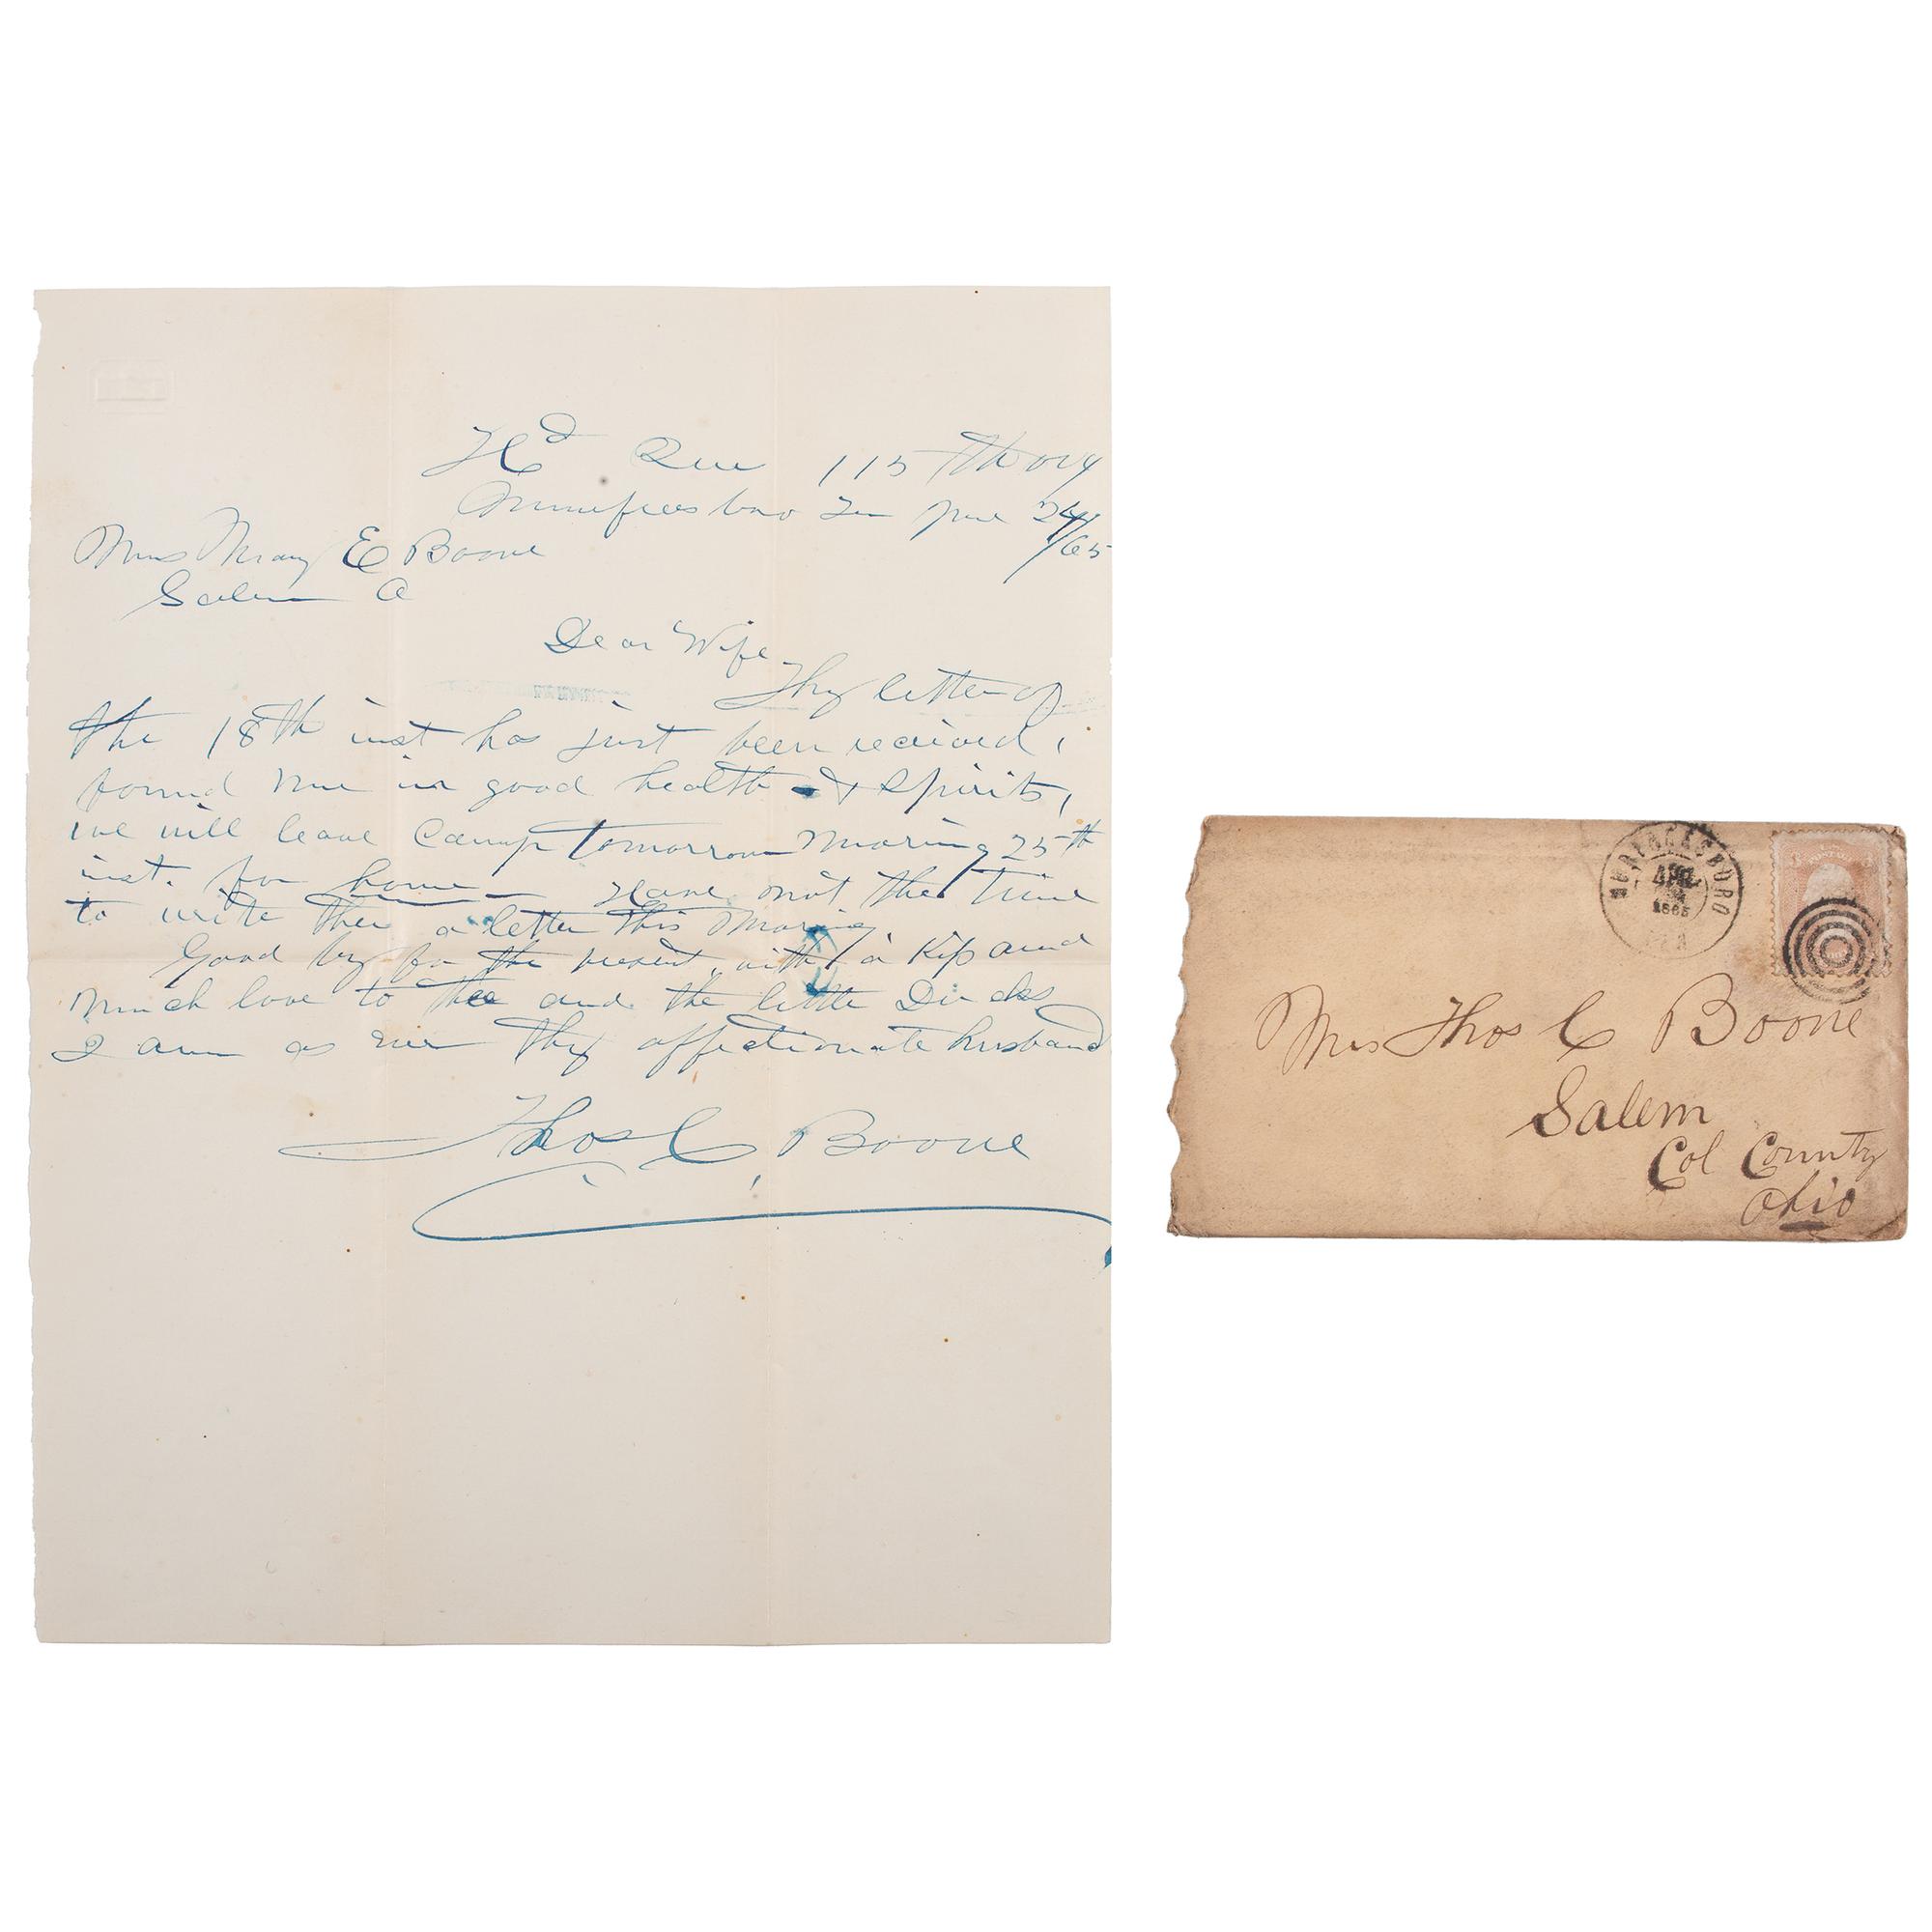 Hd Qur 115th OVI
Murfreesboro Ten June 24/65
Mrs Mary E Boone
Salem O
Dear Wife
Thy letter of
the 18th inst has just been received,
found me in good health & spirits,
we will leave Camp tomorrow morning 25th
inst. for home – Have not the time
to write thee a letter this morning
Good by for the present, with a Kiss and
much love to thee and the little Ducks
I am as ever thy affectionate husband
Thos C Boone
MURFREESBORO
1865
Mrs Thos C Boone
Salem
Col County
Ohio